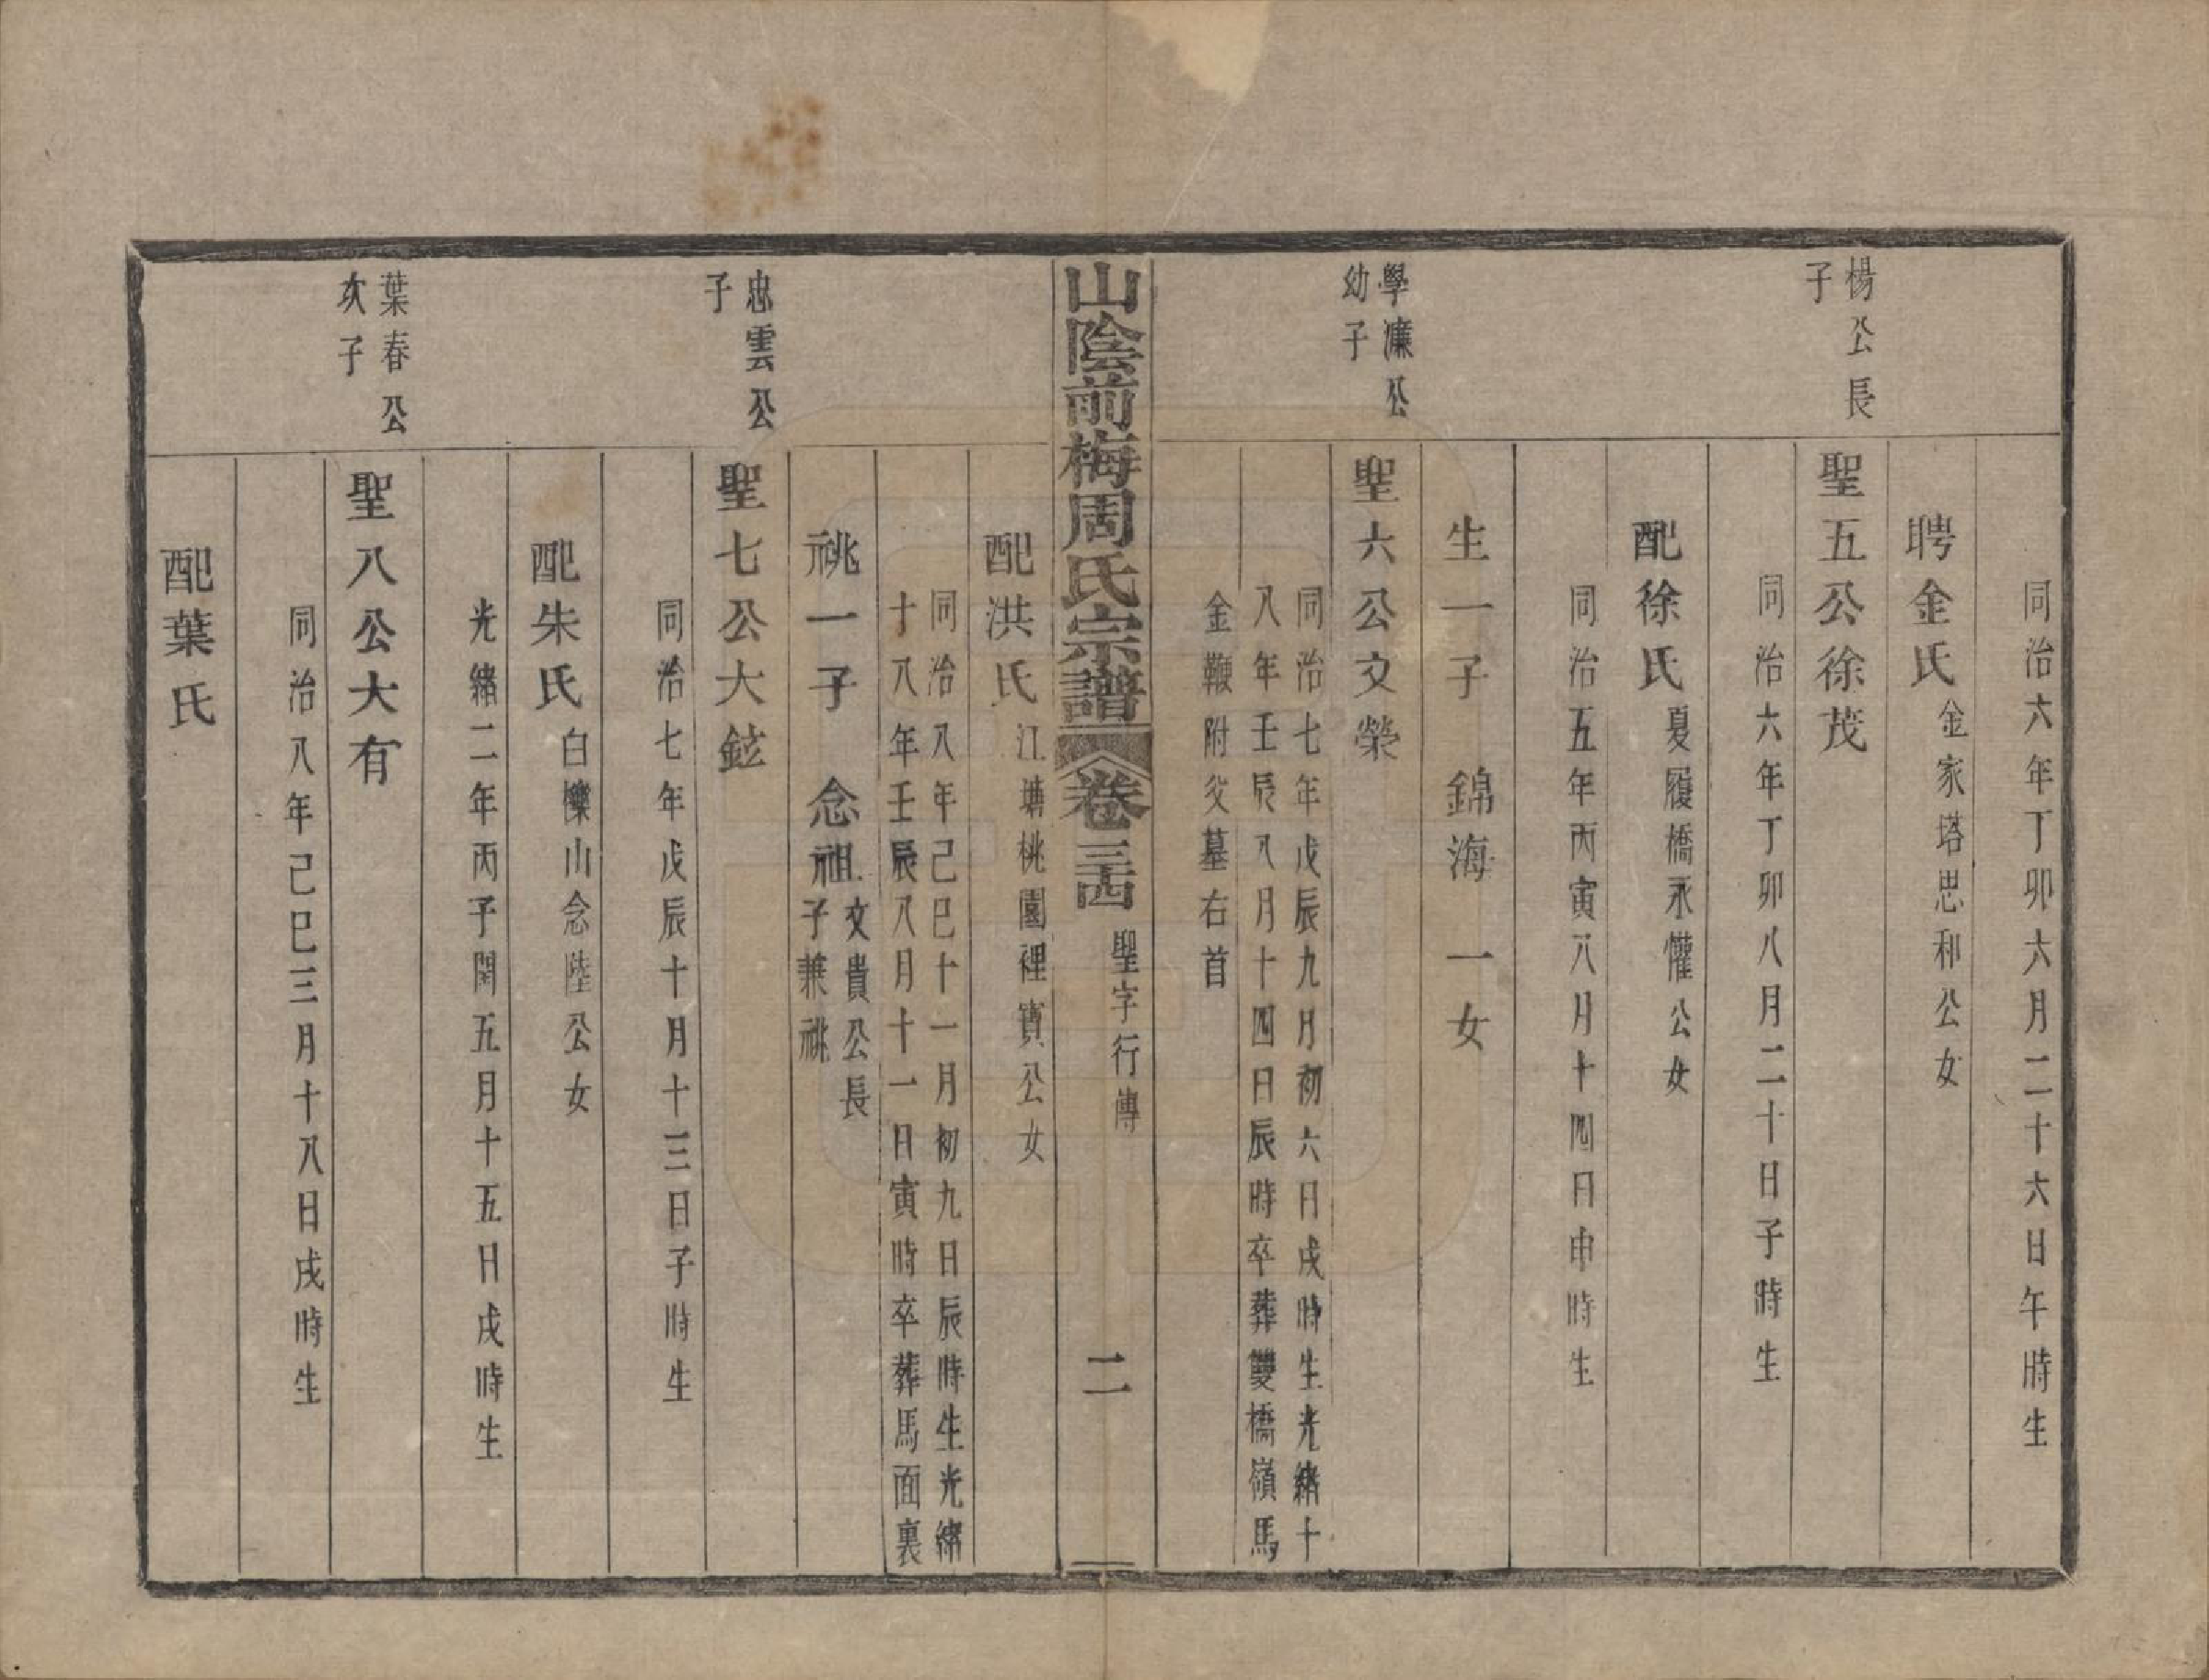 同治六年丁卯六月二十六日午時生
聘金氏金家塔思和公女
楊公長
子
聖五公徐茂
同治六年丁卯八月二十日子時生
配徐氏夏履橋永懽公女
同治五年丙寅八月十四日申時生
生一子　錦海　一女
學濂公
幼子
聖六公文榮
同治七年戊辰九月初六日戌時生光緒十
八年壬辰八月十四日辰時卒葬雙橋嶺馬
金鞭附父墓右首
山陰前梅周氏宗譜 卷三十四 聖字行傳 二
配洪氏江塘桃園裡寶公女
同治八年己巳十一月初九日辰時生光緒
十八年壬辰八月十一日寅時卒葬馬面裏
祧一子　念祖
文貴公長
子兼祧
忠雲公
子
聖七公大鉉
同治七年戊辰十月十三日子時生
配朱氏白櫟山念陸公女
光緒二年丙子閏五月十五日戌時生
葉春公
次子
聖八公大有
同治八年己巳三月十八日戌時生
配葉氏